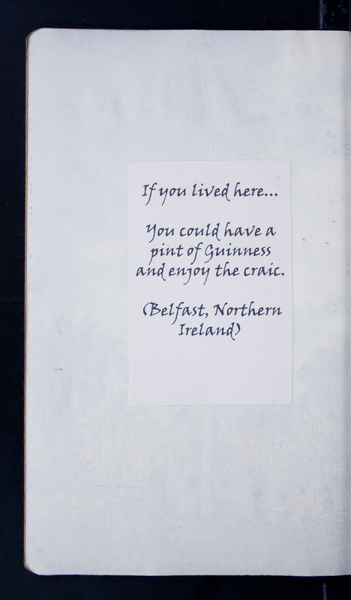 If you lived here...
You could have a
pint of Guinness
and enjoy the craic.
(Belfast, Northern
Ireland)